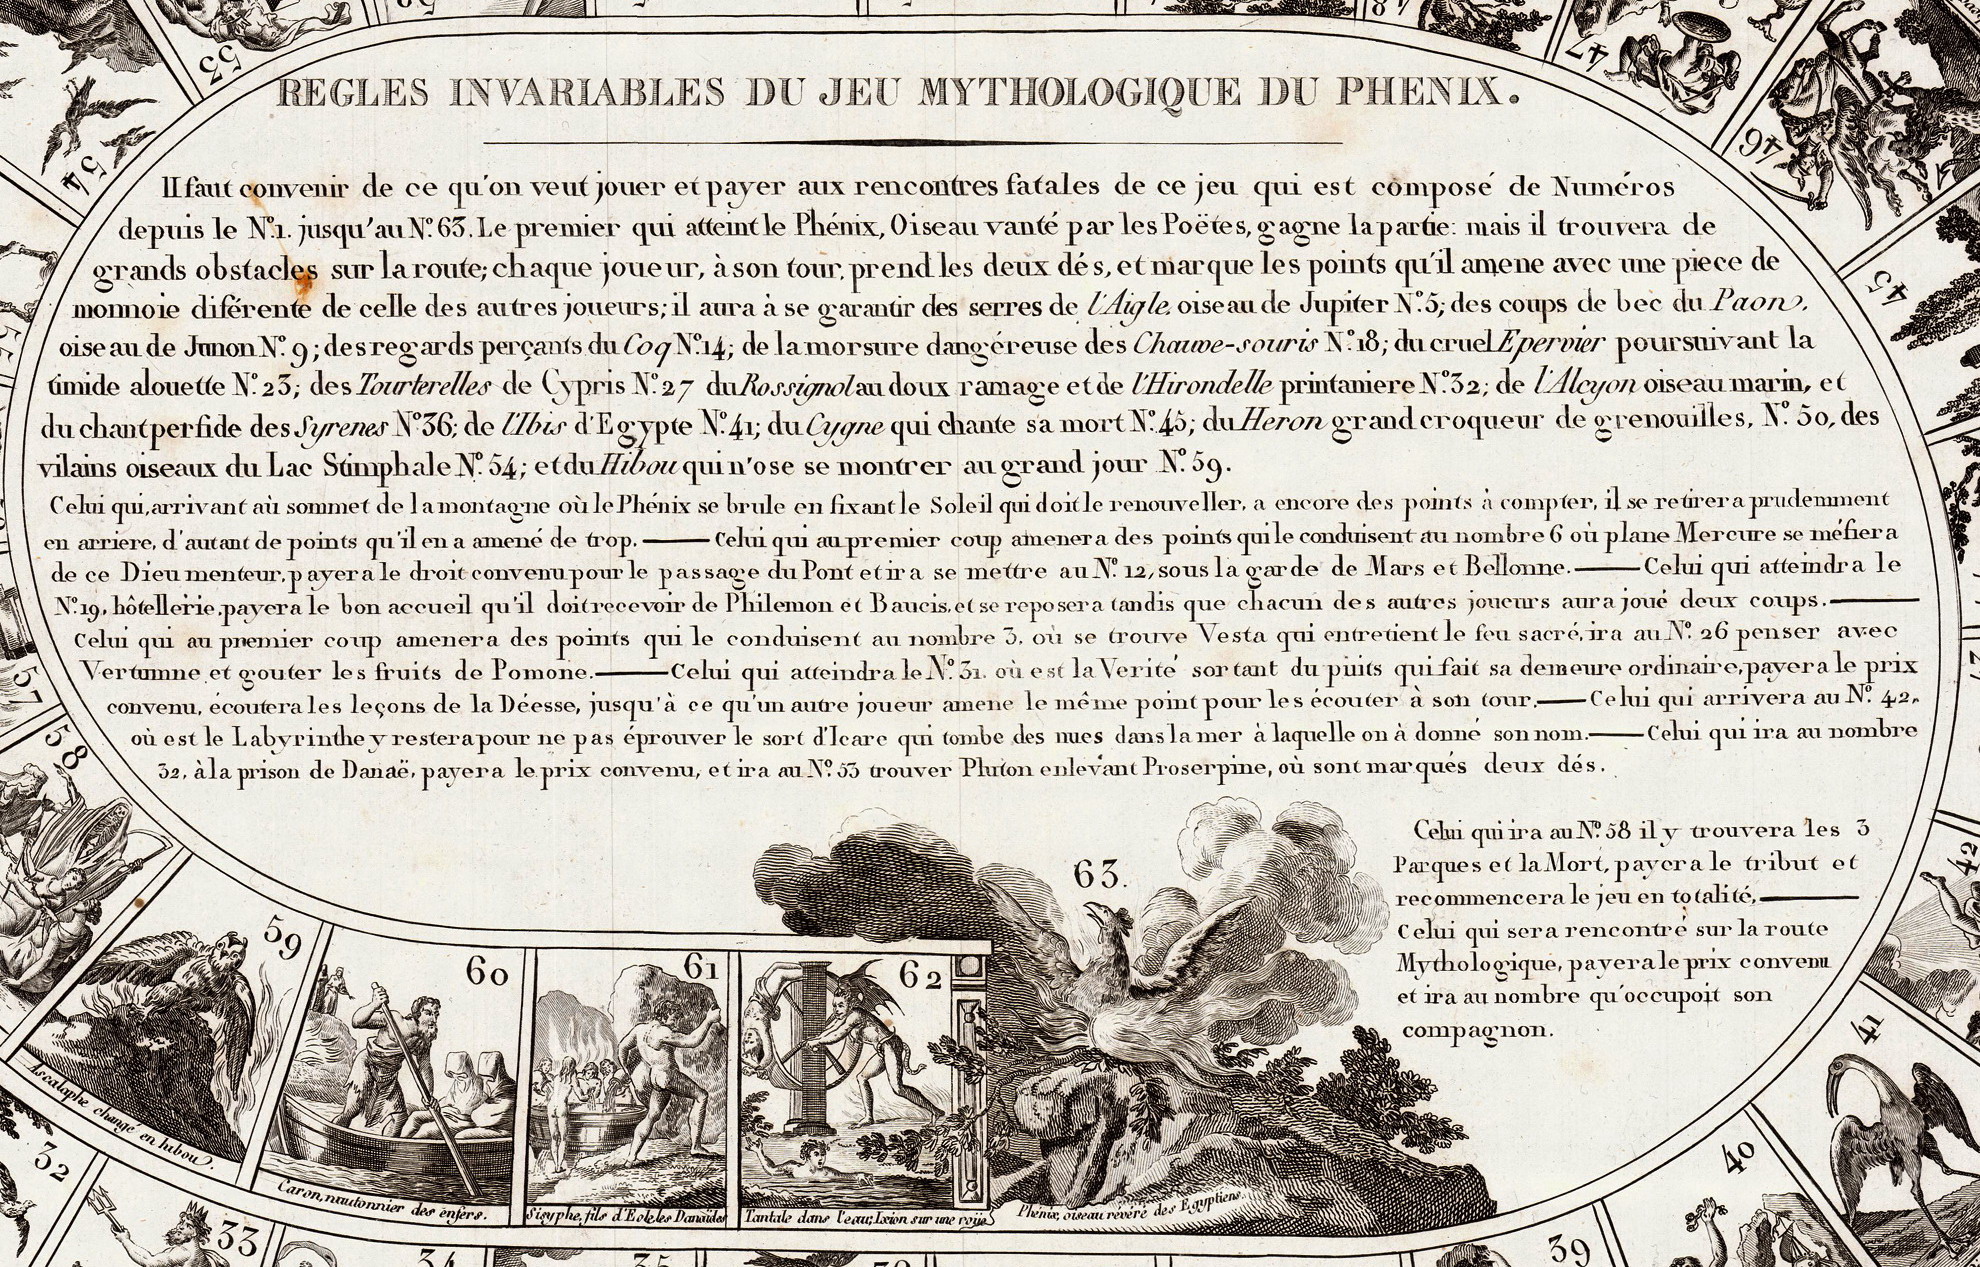 REGLES INVARIABLES DU JEU MYTHOLOGIQUE DU PHENIX.
Il faut convenir de ce qu'on veut jouer et payer aux rencontres fatales de ce jeu qui est composé de Numéros
depuis le N.º1. jusqu'au N.º63. Le premier qui atteint le Phénix, Oiseau vanté par les Poëtes, gagne la partie: mais il trouvera de
grands obstacles sur la route; chaque joueur, à son tour, prend les deux dés, et marque les points qu'il amene avec une piece de
monnoie diférente de celle des autres joueurs; il aura à se garantir des serres de l'Aigle, oiseau de Jupiter N.º5; des coups de bec du Paon,
oiseau de Junon N.º 9; des regards perçants du Coq N.º14; de la morsure dangéreuse des Chauve-souris N.º18; du cruel Epervier poursuivant la
timide alouette N.º 23; des Tourterelles de Cypris N.º27 du Rossignol au doux ramage et de l'Hirondelle printaniere N.º32; de l'Alcyon oiseau marin, et
du chant perfide des Syrenes Nº36; de l'Ibis d'Egypte N.º41; du Cygne qui chante sa mort N.º45; du Heron grand croqueur de grenouilles, N.º 50, des
vilains oiseaux du Lac Stimphale N.º 54; et du Hibou qui n'ose se montrer au grand jour N.º 59.
Celui qui, arrivant aù sommet de la montagne où le Phénix se brule en fixant le Soleil qui doit le renouveller, a encore des points à compter, il se retirera prudemment
en arriere, d'autant de points qu'il en a amené de trop. — Celui qui au premier coup amenera des points qui le conduisent au nombre 6 où plane Mercure se méfiera
de ce Dieu menteur, payera le droit convenu pour le passage du Pont et ira se mettre au N.º 12, sous la garde de Mars et Bellonne. — Celui qui atteindra le
N.º19, hôtellerie, payera le bon accueil qu'il doit recevoir de Philemon et Baucis, et se reposera tandis que chacun des autres joueurs aura joué deux coups. —
Celui qui au premier coup amenera des points qui le conduisent au nombre 3, où se trouve Vesta qui entretient le feu sacré, ira au N.º 26 penser avec
Vertumne et gouter les fruits de Pomone. — Celui qui atteindra le N.º 31, où est la Verité sortant du puits qui fait sa demeure ordinaire, payera le prix
convenu, écoutera les leçons de la Déesse, jusqu'à ce qu'un autre joueur amene le même point pour les écouter à son tour. — Celui qui arrivera au N.º 42,
où est le Labyrinthe y restera pour ne pas éprouver le sort d'Icare qui tombe des nues dans la mer à laquelle on à donné son nom. — Celui qui ira au nombre
32, à la prison de Danaë, payera le prix convenu, et ira au N.º 53 trouver Pluton enlevant Proserpine, où sont marqués deux dés.
Celui qui ira au N.º 58 il y trouvera les 3
Parques et la Mort, payera le tribut et
recommencera le jeu en totalité, —
Celui qui sera rencontré sur la route
Mythologique, payera le prix convenu
et ira au nombre qu'occupoit son
compagnon.
53
54
57
58
59
Ascalaphe changé en hibou.
60
Caron, nautonnier des enfers.
61
Sisyphe, fils d'Eole les Danaïdes
62
Tantale dans l'eau; Ixion sur une roüe
63.
Phénix, oiseau révéré des Egyptiens.
47
46
45
42
41
40
39
35
34
33
32